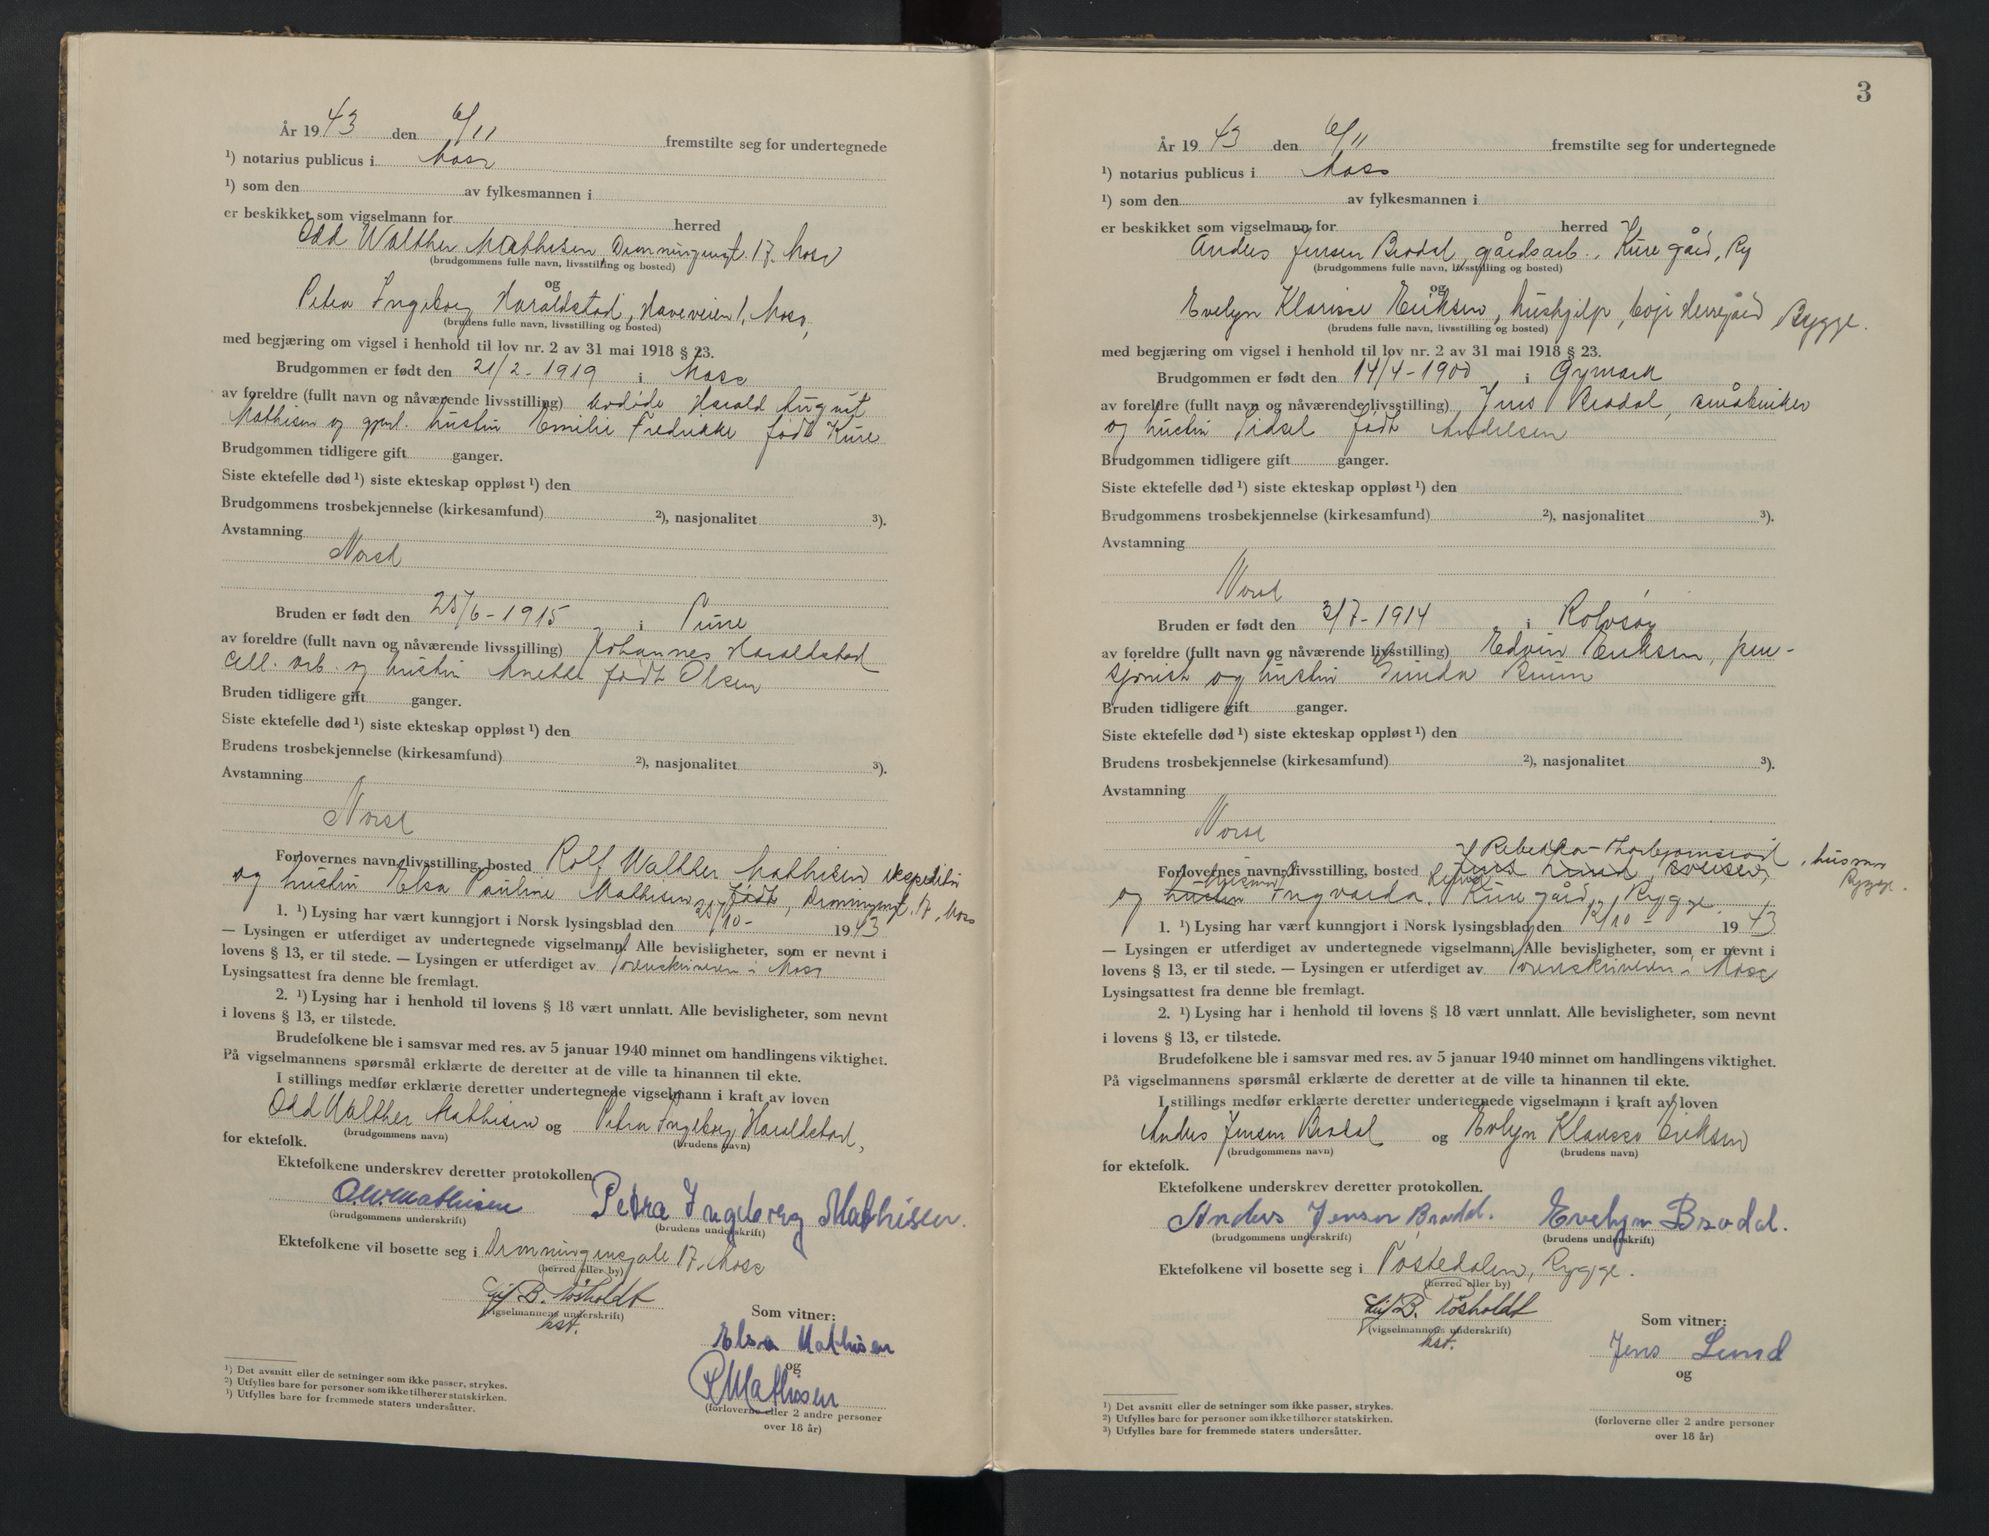 År 1943 den 6/11 fremstilte seg for undertegnede
¹) notarius publicus i Moss
¹) som den av fylkesmannen i
er beskikket som vigselmann for herred
Odd Walther Mathisen, Dronningensgt. 17, Moss
(brudgommens fulle navn, livsstilling og bosted)
og
Petra Ingeborg Haraldstad, Haveveien 1, Moss,
(brudens fulle navn, livsstilling og bosted)
med begjæring om vigsel i henhold til lov nr. 2 av 31 mai 1918 § 23.
Brudgommen er født den 21/2-1919 i Moss
av foreldre (fullt navn og nåværende livsstilling) Harald August
Mathisen og hustru Emilie Fredrikke født Kure
Brudgommen tidligere gift ganger.
Siste ektefelle død ¹) siste ekteskap oppløst ¹) den
Brudgommens trosbekjennelse (kirkesamfund) ²), nasjonalitet ³).
Avstamning
Norsk
Bruden er født den 25/6-1915 i Tune
av foreldre (fullt navn og nåværende livsstilling) Johannes Haraldstad
cell. arb. og hustru Anette født Olsen
Bruden tidligere gift ganger.
Siste ektefelle død ¹) siste ekteskap oppløst ¹) den
Brudens trosbekjennelse (kirkesamfund) ²), nasjonalitet ³).
Avstamning
Norsk
Forlovernes navn, livsstilling, bosted Rolf Walther Mathisen ekspeditør
og hustru Elsa Pauline Mathisen født, Dronningensgt. 17, Moss
1. ¹) Lysing har vært kunngjort i Norsk lysingsblad den 25/10- 1943
— Lysingen er utferdiget av undertegnede vigselmann. Alle bevisligheter, som er nevnt i
lovens § 13, er til stede. — Lysingen er utferdiget av Sorenskriveren i Moss
Lysingsattest fra denne ble fremlagt.
2. ¹) Lysing har i henhold til lovens § 18 vært unnlatt. Alle bevisligheter, som nevnt
i lovens § 13, er tilstede.
Brudefolkene ble i samsvar med res. av 5 januar 1940 minnet om handlingens viktighet.
På vigselmannens spørsmål erklærte de deretter at de ville ta hinannen til ekte.
I stillings medfør erklærte deretter undertegnede vigselmann i kraft av loven
Odd Walther Mathisen og Petra Ingeborg Haraldstad,
(brudgommens navn) (brudens navn)
for ektefolk.
Ektefolkene underskrev deretter protokollen.
O.W. Mathisen Petra Ingeborg Mathisen.
(brudgommens underskrift) (brudens underskrift)
Ektefolkene vil bosette seg i Dronningensgate 17, Moss
(herred eller by)
B.
(vigselmannens underskrift)
kst.
Som vitner:
Elsa Mathisen
og
R Mathisen
(forloverne eller 2 andre personer
over 18 år)
¹) Det avsnitt eller de setninger som ikke passer, strykes.
²) Utfylles bare for personer som ikke tilhører statskirken.
³) Utfylles bare for fremmede staters undersåtter.
3
År 1943 den 6/11 fremstilte seg for undertegnede
¹) notarius publicus i Moss
¹) som den av fylkesmannen i
er beskikket som vigselmann for herred
Anders Jensen Brodal, gårdsarb., Kure gård, Ry
(brudgommens fulle navn, livsstilling og bosted)
og
Evelyn Klarisse Eriksen, hushjelp, Herregård Rygge.
(brudens fulle navn, livsstilling og bosted)
med begjæring om vigsel i henhold til lov nr. 2 av 31 mai 1918 § 23.
Brudgommen er født den 14/4-1900 i Gymark
av foreldre (fullt navn og nåværende livsstilling) Jens Brodal, småbruker
og hustru Sidsel født Andersen
Brudgommen tidligere gift ganger.
Siste ektefelle død ¹) siste ekteskap oppløst ¹) den
Brudgommens trosbekjennelse (kirkesamfund) ²), nasjonalitet ³).
Avstamning
Norsk
Bruden er født den 3/7-1914 i Rolvsøy
av foreldre (fullt navn og nåværende livsstilling) Edvin Eriksen, pen-
sjonist og hustru Gunda Buum
Bruden tidligere gift ganger.
Siste ektefelle død ¹) siste ekteskap oppløst ¹) den
Brudens trosbekjennelse (kirkesamfund) ²), nasjonalitet ³).
Avstamning
Norsk
Rebekka Thorbjørnsrød, husmor
Rygge.
Forlovernes navn, livsstilling, bosted Jens Lund, sveiser,
og hustru Ingvarda, Kure gård, Rygge.
1. ¹) Lysing har vært kunngjort i Norsk lysingsblad den 12/10- 1943
— Lysingen er utferdiget av undertegnede vigselmann. Alle bevisligheter, som er nevnt i
lovens § 13, er til stede. — Lysingen er utferdiget av Sorenskriveren i Moss
Lysingsattest fra denne ble fremlagt.
2. ¹) Lysing har i henhold til lovens § 18 vært unnlatt. Alle bevisligheter, som nevnt
i lovens § 13, er tilstede.
Brudefolkene ble i samsvar med res. av 5 januar 1940 minnet om handlingens viktighet.
På vigselmannens spørsmål erklærte de deretter at de ville ta hinannen til ekte.
I stillings medfør erklærte deretter undertegnede vigselmann i kraft av loven
Anders Jensen Brodal og Evelyn Klarisse Eriksen
(brudgommens navn) (brudens navn)
for ektefolk.
Ektefolkene underskrev deretter protokollen.
Anders Jensen Brodal. Evelyn Brodal.
(brudgommens underskrift) (brudens underskrift)
Ektefolkene vil bosette seg i Tostedalen, Rygge.
(herred eller by)
B.
(vigselmannens underskrift)
kst.
Som vitner:
Jens Lund
og
(forloverne eller 2 andre personer
over 18 år)
¹) Det avsnitt eller de setninger som ikke passer, strykes.
²) Utfylles bare for personer som ikke tilhører statskirken.
³) Utfylles bare for fremmede staters undersåtter.